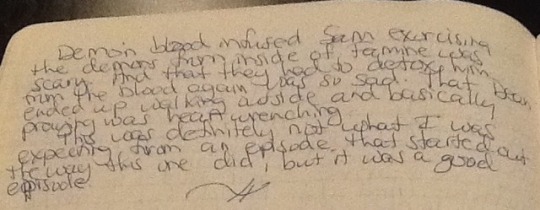 Demon blood infused Sam exorcising
the demons from inside of famine was
scary. And that they had to detox him
from the blood again was so sad. That Dean
ended up walking outside and basically
praying was heart wrenching.
This was definitely not what I was
expecting from an episode that started out
the way this one did, but it was a good
episode